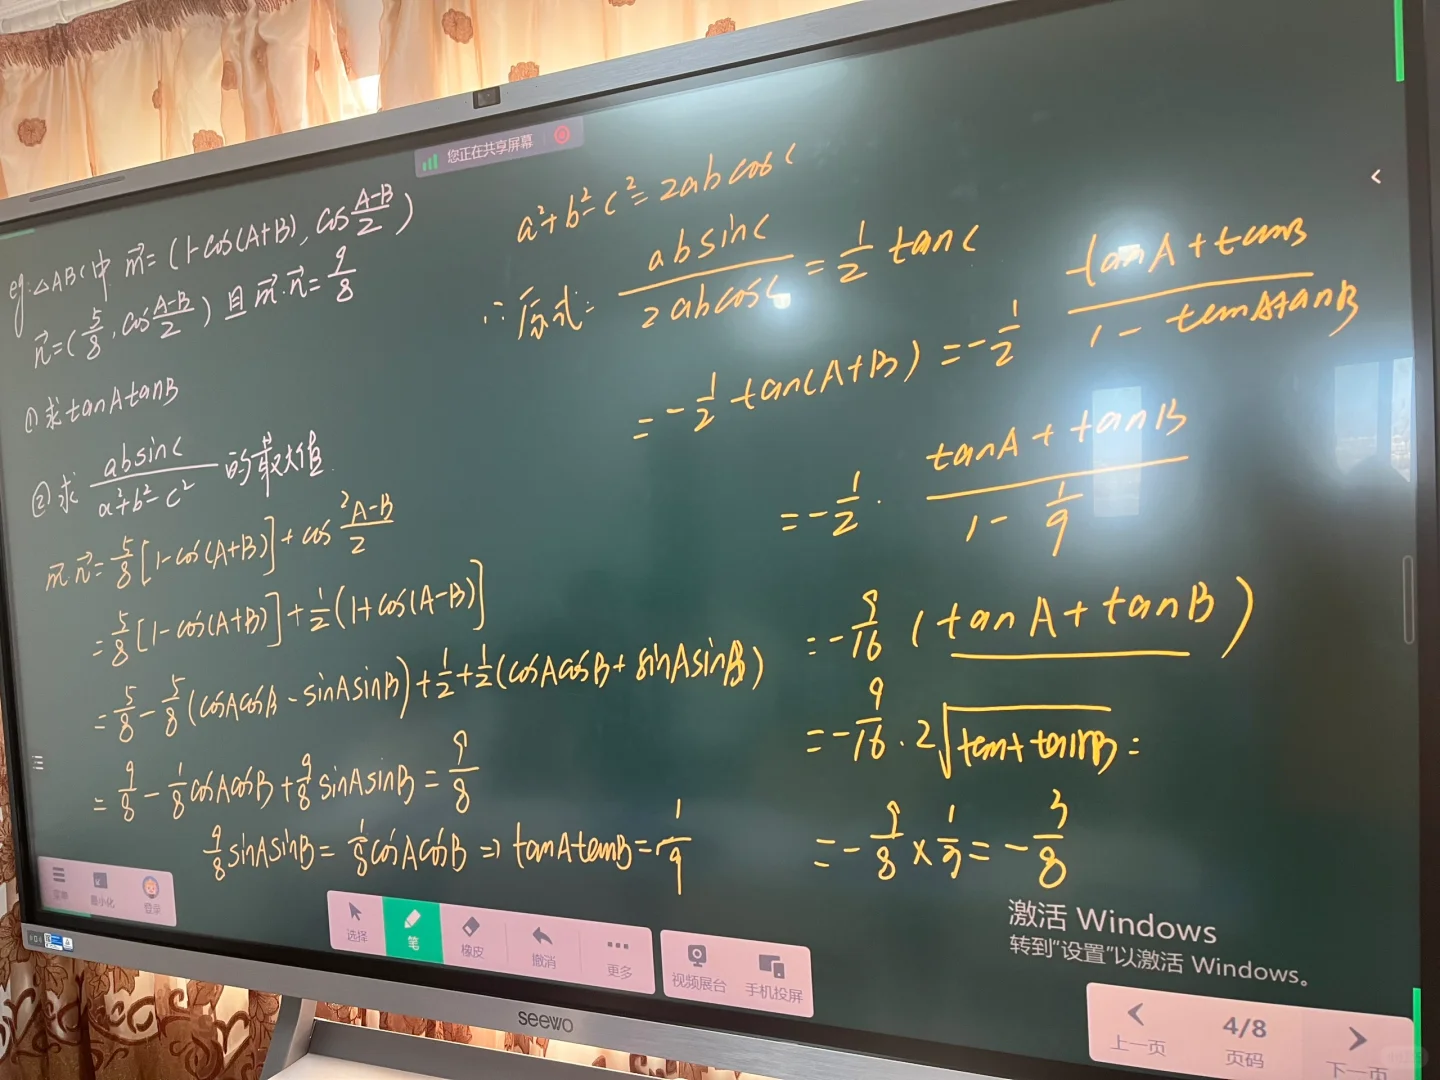 您正在共享屏幕
eg: △ABC中 m⃗=(1-cos(A+B), cos(A-B)/2)
n⃗=(5/8, cos(A-B)/2) 且 m⃗·n⃗=9/8
① 求 tanAtanB
② 求 absinC/(a²+b²-c²) 的最大值
m⃗·n⃗=5/8[1-cos(A+B)]+cos²(A-B)/2
=5/8[1-cos(A+B)]+1/2(1+cos(A-B)]
=5/8-5/8(cosAcosB-sinAsinB)+1/2+1/2(cosAcosB+sinAsinB)
=9/8-1/8cosAcosB+9/8sinAsinB=9/8
9/8sinAsinB=1/8cosAcosB⇒tanAtanB=1/9
a²+b²-c²=2abcosC
∴原式=absinC/2abcosC=1/2tanC
=-1/2tan(A+B)=-1/2 (tanA+tanB)/(1-tanAtanB)
=-1/2·(tanA+tanB)/(1-1/9)
=-9/16(tanA+tanB)
=-9/16·2√tanAtanB=
=-9/8×1/3=-3/8
激活 Windows
转到“设置”以激活 Windows。
菜单 最小化 登录
选择 笔 橡皮 撤消 更多
视频展台 手机投屏
上一页 4/8 页码 下一页
seewo